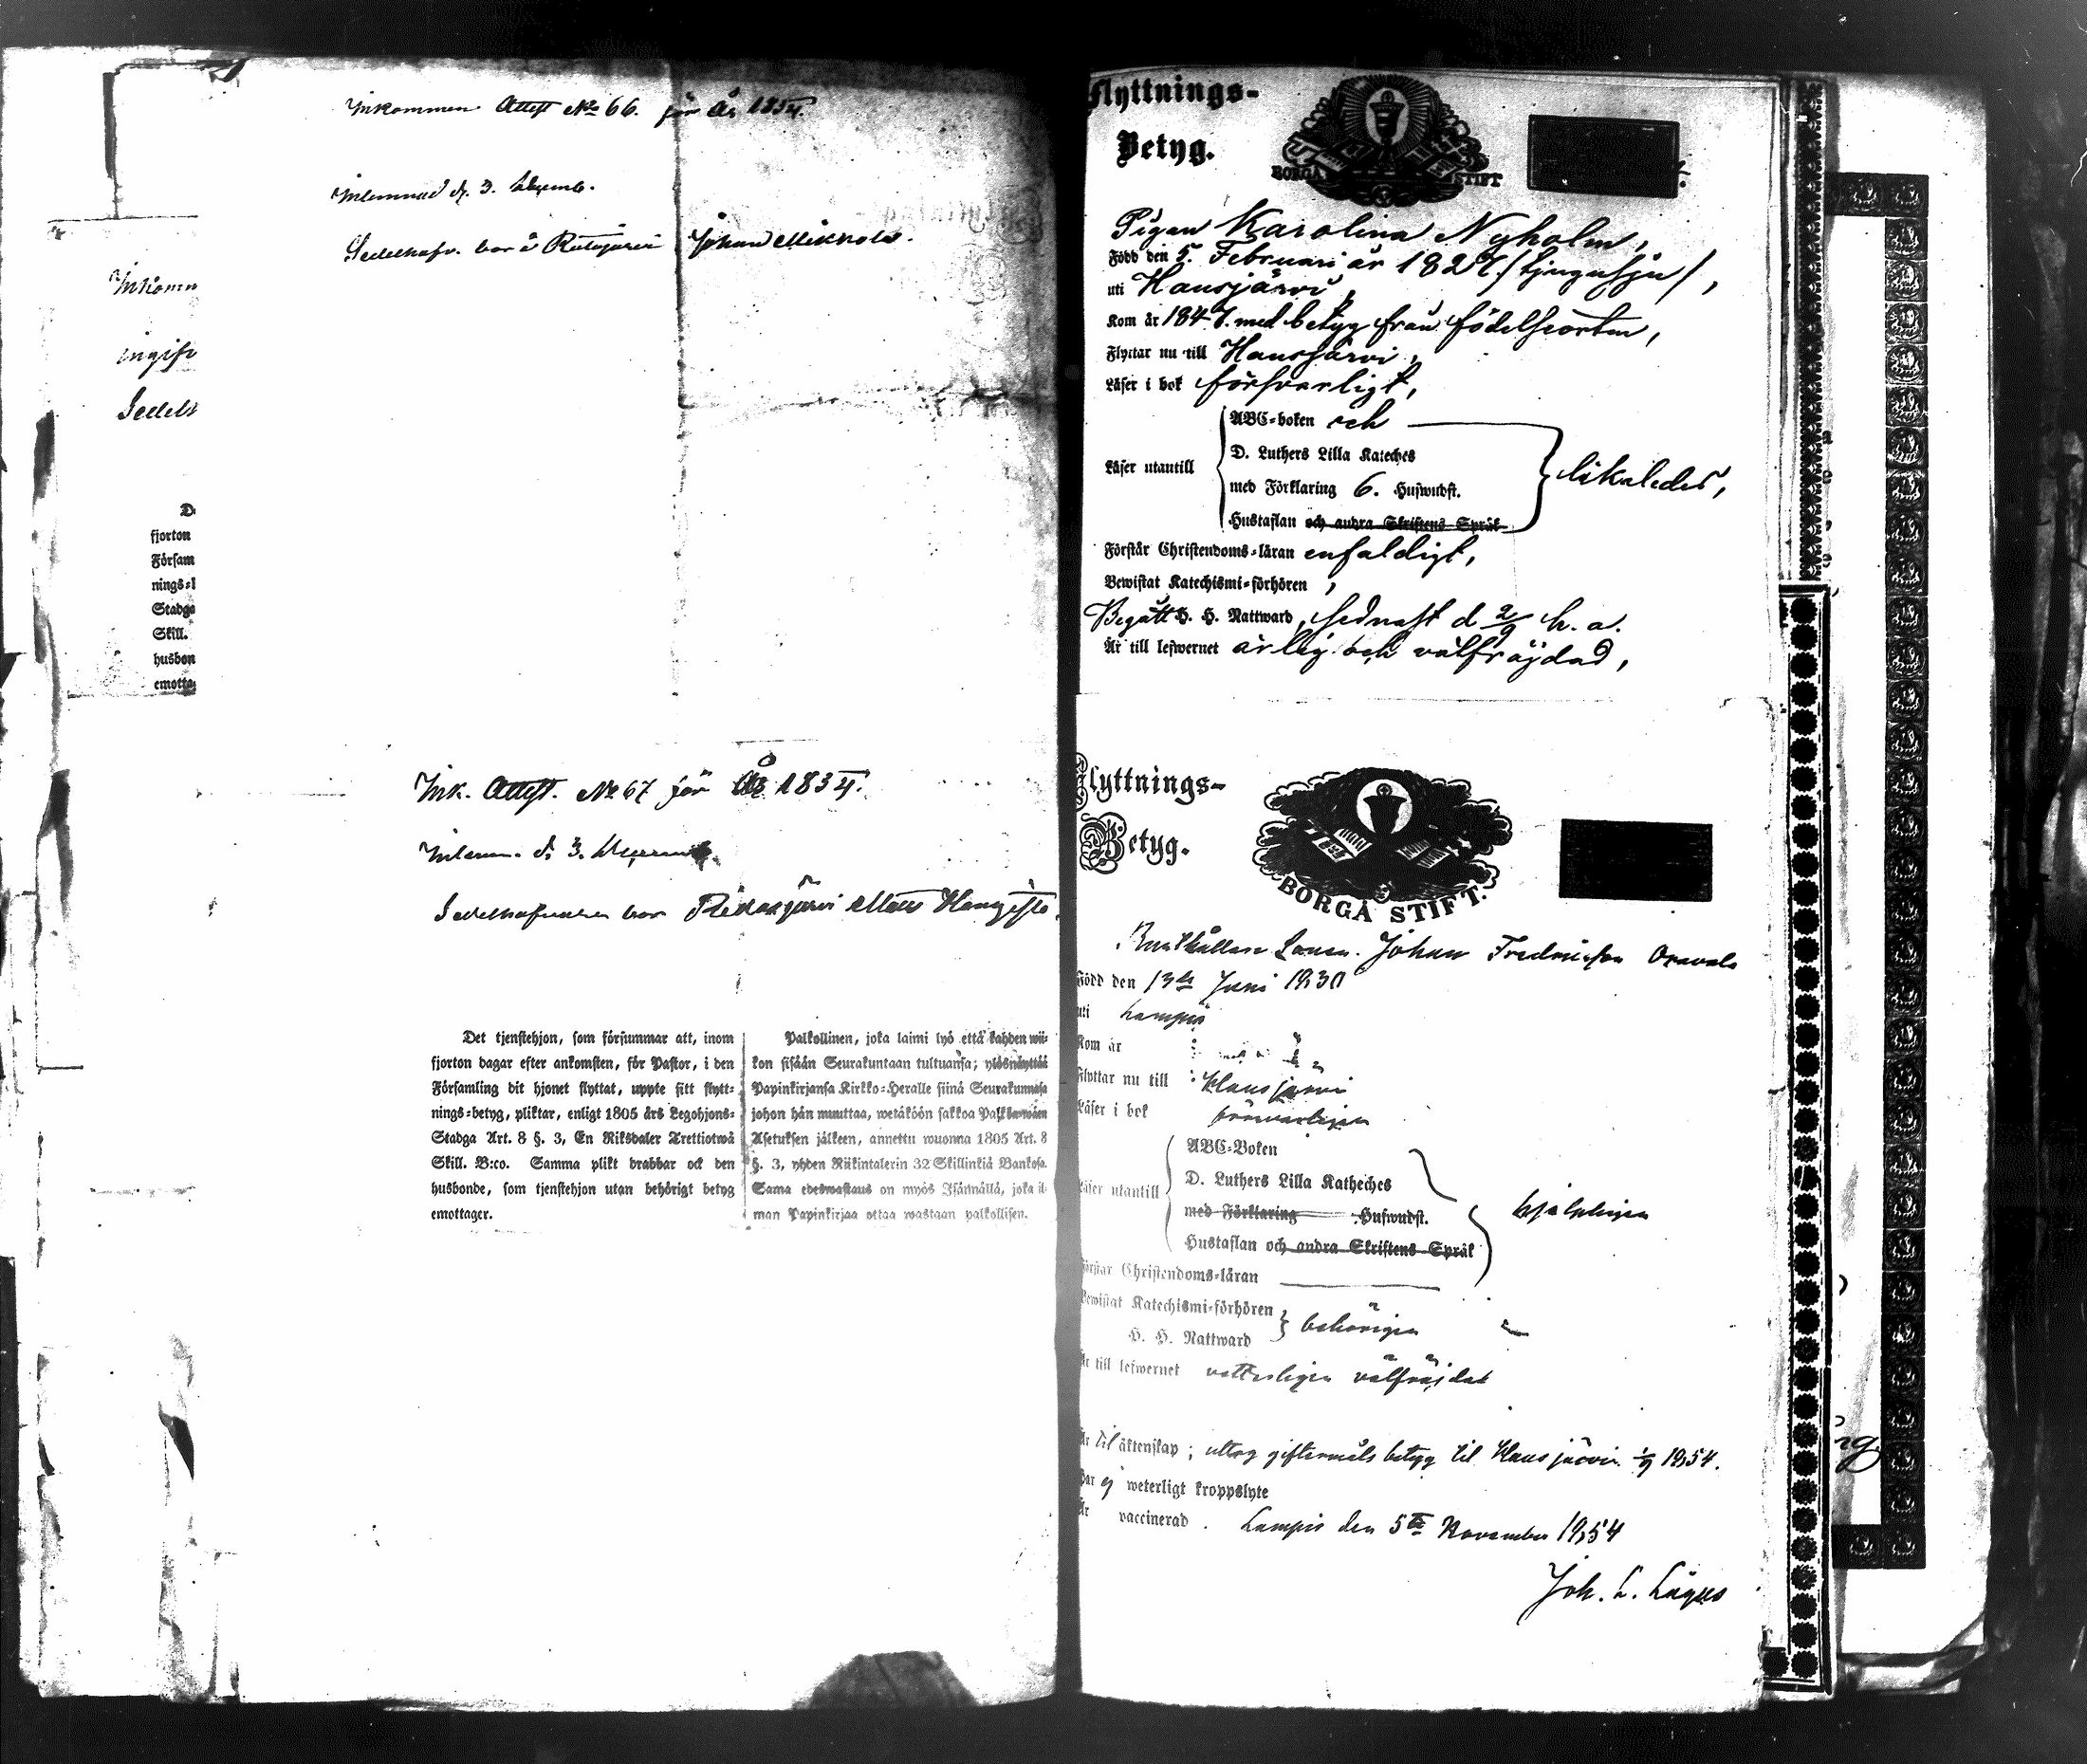 Inkommen Attest No 66. för År 1854.
Inlemnad d. 3. Decemb.
Sedelhafv. bor i Ridasjärvi Johan Mikkola.
Inkomn
ingifv
Sedelh
De
fjorton
Försam
nings-b
Stadga
Skill.
husbon
emotta
Ink. Attest. No 67 för År 1854.
Inlemn. d. 3. Decemb.
Sedelhafvaren bor Ridasjärvi Matts
Det tjenstehjon, som försummar att, inom
fjorton dagar efter ankomsten, för Pastor, i den
Församling dit hjonet flyttat, uppte sitt flytt-
nings-betyg, pliktar, enligt 1805 års Legohjons-
Stadga Art. 8 §. 3, En Riksdaler Trettiotwå
Skill. B:co. Samma plikt drabbar ock den
husbonde, som tjenstehjon utan behörigt betyg
emottager.
Palkollinen, joka laimi lyö että kahden wii-
kon sisään Seurakuntaan tultuansa; ylösnäyttää
Papinkirjansa Kirkko-Herralle siinä Seurakunnasa
johon hän muuttaa, wetäköön sakkoa Palkkawäen
Asetuksen jälkeen, annettu wuonna 1805 Art. 8
§. 3, yhden Riikintalerin 32 Skillinkiä Bankosa.
Sama edeswastaus on myös Isännällä, joka il-
man Papinkirjaa ottaa wastaan palkollisen.
Flyttnings-
Betyg.
BORGÅ STIFT
Pigan Karolina Nyholm,
Född den 5. Februari år 1827. /tjugusju/,
uti Hausjärvi,
Kom år 1847. med betyg från födelseorten,
Flyttar nu till Hausjärvi,
Läser i bok försvarligt,
Läser utantill
ABC-boken och
D. Luthers Lilla Kateches
med Förklaring 6. Hufwudst.
Hustaflan och andra Skriftens Språk
likaledes,
Förstår Christendoms-läran enfaldigt,
Bewistat Katechismi-förhören ,
Begått H. H. Nattward, sednast d 2/9 h. a.
Är till lefwernet ärlig och välfräjdad,
Flyttnings-
Betyg.
BORGÅ STIFT.
Johan Fredricsson Oravala
Född den 13de Juni 1830
uti Lampis
Kom år
Flyttar nu till Hausjärvi
Läser i bok försvarligen
Läser utantill
ABC-Boken
D. Luthers Lilla Katheches
med Förklaring Hufwudst.
Hustaflan och andra Skriftens Språk
hjelpligen
Förstår Christendoms-läran
Bewistat Katechismi-förhören
H. H. Nattward
behörigen
Är till lefwernet vetterligen välfräjdat
Är til äktenskap; uttog giftermåls betyg til Hausjärvi 1/9 1854.
Har ej weterligt kroppslyte
Är vaccinerad. Lampis den 5te November 1854
Joh. L. Lagus